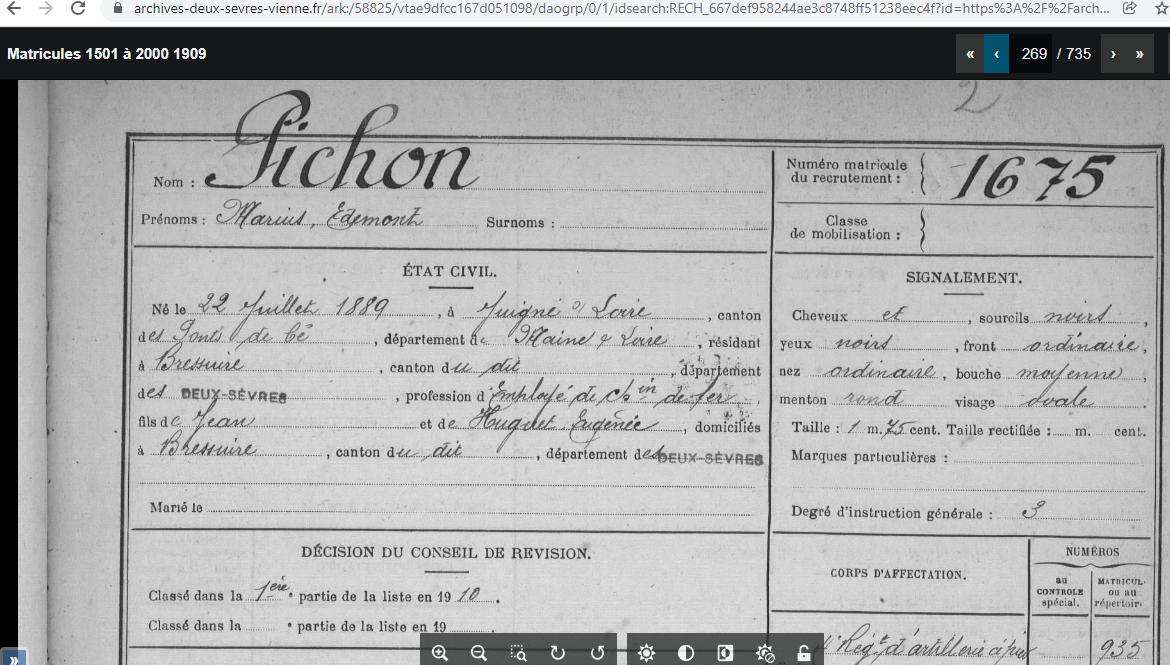 archives-deux-sevres-vienne.fr/ark:/58825/vtae9dfcc167d051098/daogrp/0/1/idsearch:RECH_667def958244ae3c8748ff51238eec4f?id=https%3A%2F%2Farch...
Matricules 1501 à 2000 1909
« ‹ 269 / 735 › »
2
Nom : Pichon
Prénoms : Marius, Edemont Surnoms :
Numéro matricule
du recrutement : 1675
Classe
de mobilisation :
ÉTAT CIVIL.
Né le 22 Juillet 1889, à Juigné s/ Loire, canton
des Ponts de Cé, département de Maine & Loire, résidant
à Bressuire, canton du dit, département
des DEUX-SÈVRES, profession d'Employé de chin de fer,
fils de Jean et de Huguet Eugénie, domiciliés
à Bressuire, canton du dit, département des DEUX-SÈVRES
Marié le
SIGNALEMENT.
Cheveux et, sourcils noirs,
yeux noirs, front ordinaire,
nez ordinaire, bouche moyenne,
menton rond visage ovale.
Taille : 1 m. 75 cent. Taille rectifiée : m. cent.
Marques particulières :
Degré d'instruction générale : 3
DÉCISION DU CONSEIL DE REVISION.
Classé dans la 1ère partie de la liste en 1910.
Classé dans la • partie de la liste en 19
CORPS D'AFFECTATION.
NUMÉROS
au
CONTROLE
spécial.
MATRICUL
ou au
répertoire
Régt d'artillerie à pied 935
»